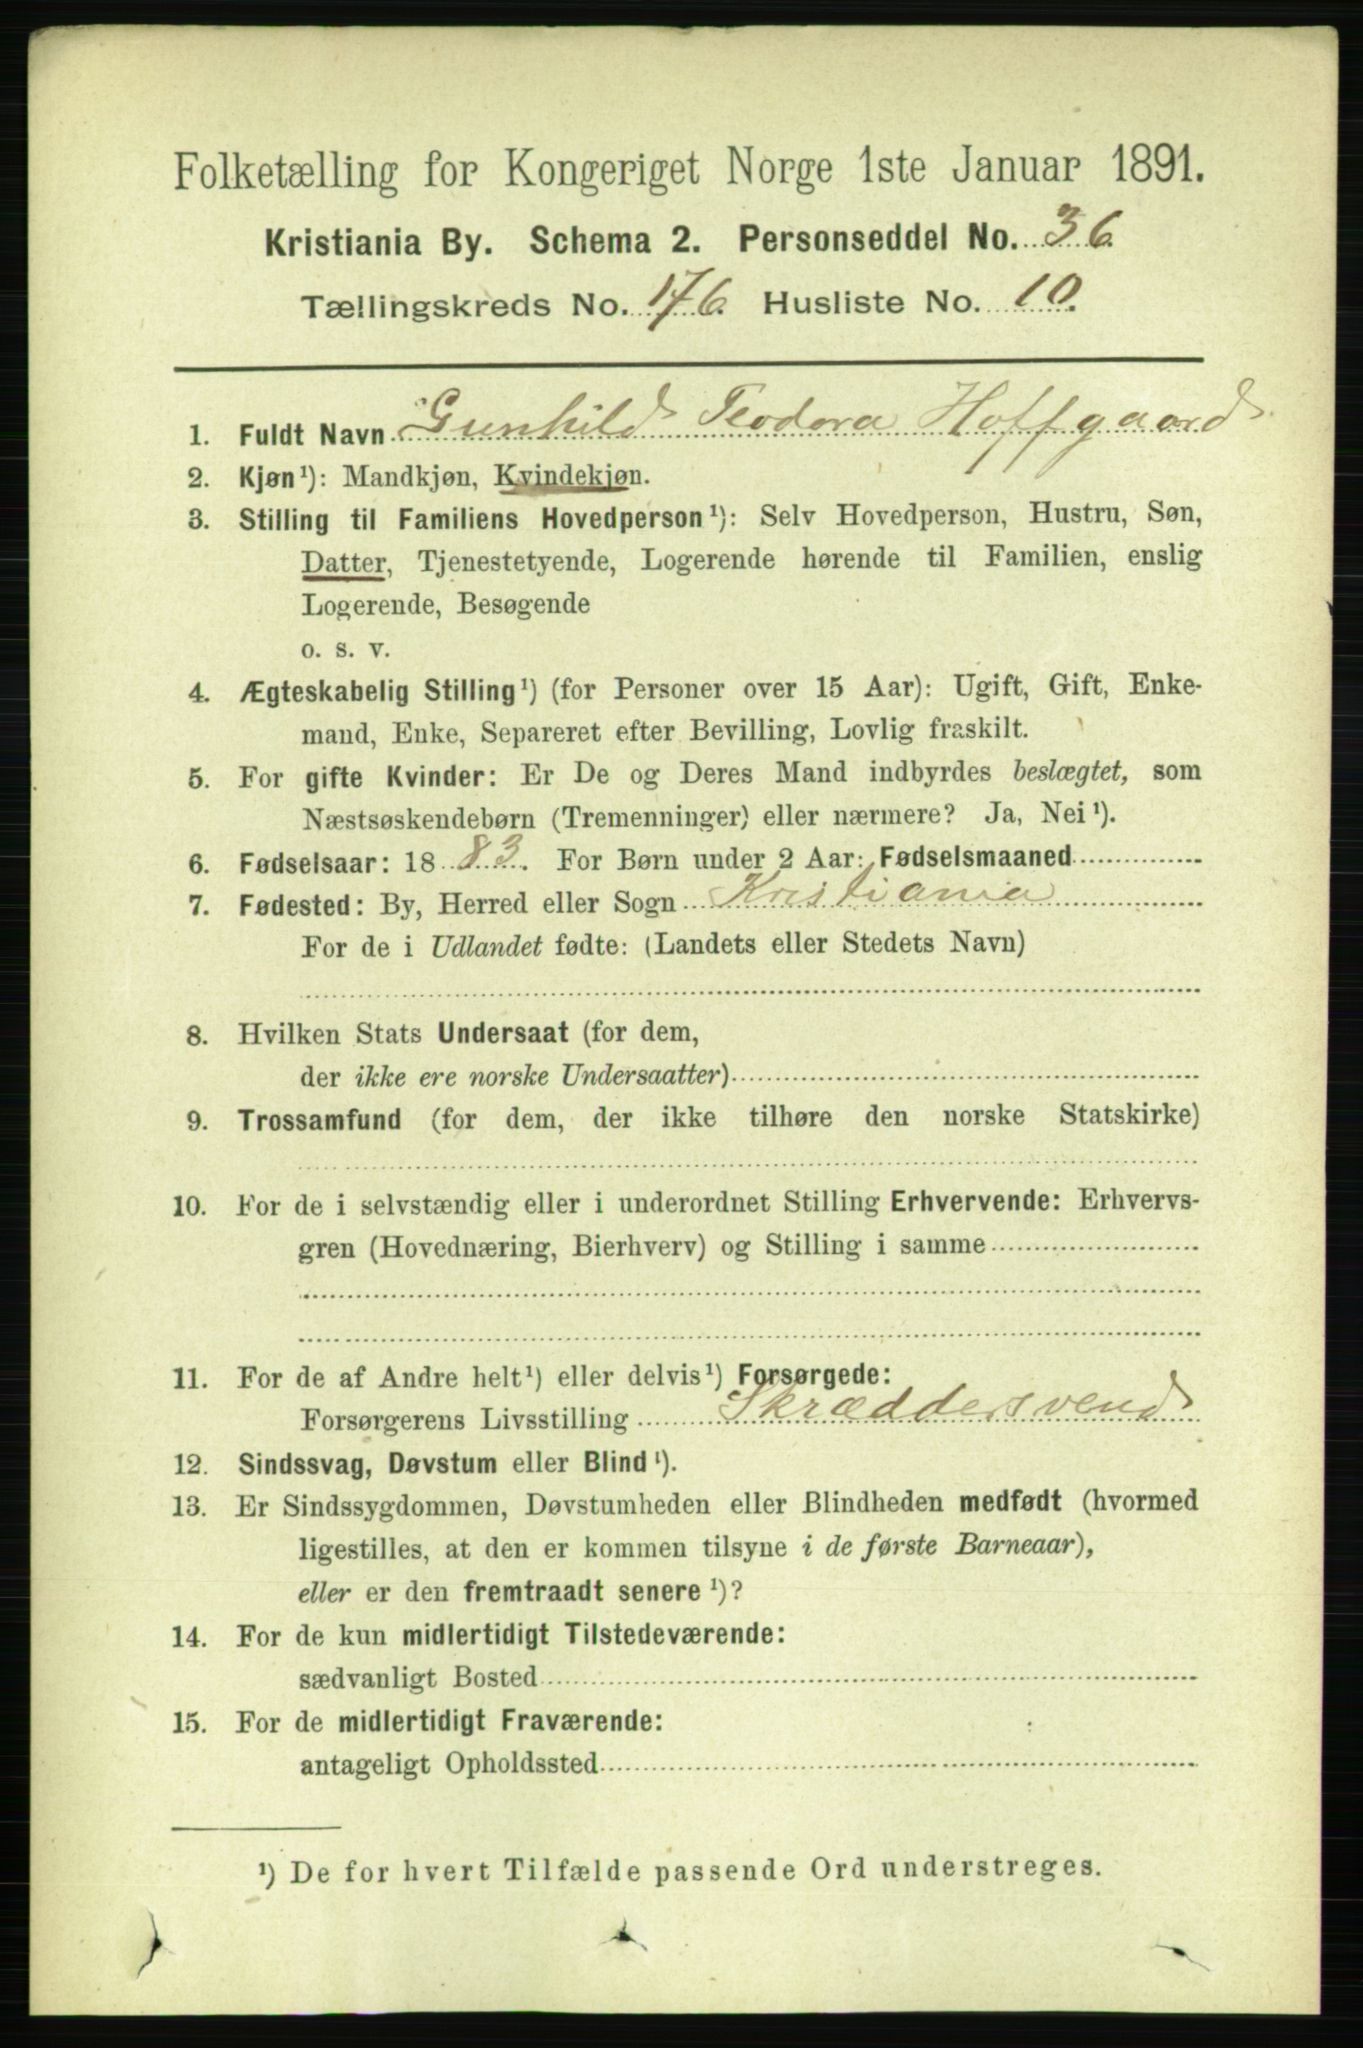 Folketælling for Kongeriget Norge 1ste Januar 1891.
Kristiania By. Schema 2. Personseddel No. 36
Tællingskreds No. 176 Husliste No. 10.
1. Fuldt Navn Gunhild Teodora Hoffgaard
2. Kjøn¹): Mandkjøn, Kvindekjøn.
3. Stilling til Familiens Hovedperson¹): Selv Hovedperson, Hustru, Søn,
Datter, Tjenestetyende, Logerende hørende til Familien, enslig
Logerende, Besøgende
o. s. v.
4. Ægteskabelig Stilling¹) (for Personer over 15 Aar): Ugift, Gift, Enke-
mand, Enke, Separeret efter Bevilling, Lovlig fraskilt.
5. For gifte Kvinder: Er De og Deres Mand indbyrdes beslægtet, som
Næstsøskendebørn (Tremenninger) eller nærmere? Ja, Nei¹).
6. Fødselsaar: 1883. For Børn under 2 Aar: Fødselsmaaned
7. Fødested: By, Herred eller Sogn Kristiania
For de i Udlandet fødte: (Landets eller Stedets Navn)
8. Hvilken Stats Undersaat (for dem,
der ikke ere norske Undersaatter)
9. Trossamfund (for dem, der ikke tilhøre den norske Statskirke)
10. For de i selvstændig eller i underordnet Stilling Erhvervende: Erhvervs-
gren (Hovednæring, Bierhverv) og Stilling i samme
11. For de af Andre helt¹) eller delvis¹) Forsørgede:
Forsørgerens Livsstilling Skræddersvend
12. Sindssvag, Døvstum eller Blind¹).
13. Er Sindssygdommen, Døvstumheden eller Blindheden medfødt (hvormed
ligestilles, at den er kommen tilsyne i de første Barneaar),
eller er den fremtraadt senere¹)?
14. For de kun midlertidigt Tilstedeværende:
sædvanligt Bosted
15. For de midlertidigt Fraværende:
antageligt Opholdssted
¹) De for hvert Tilfælde passende Ord understreges.